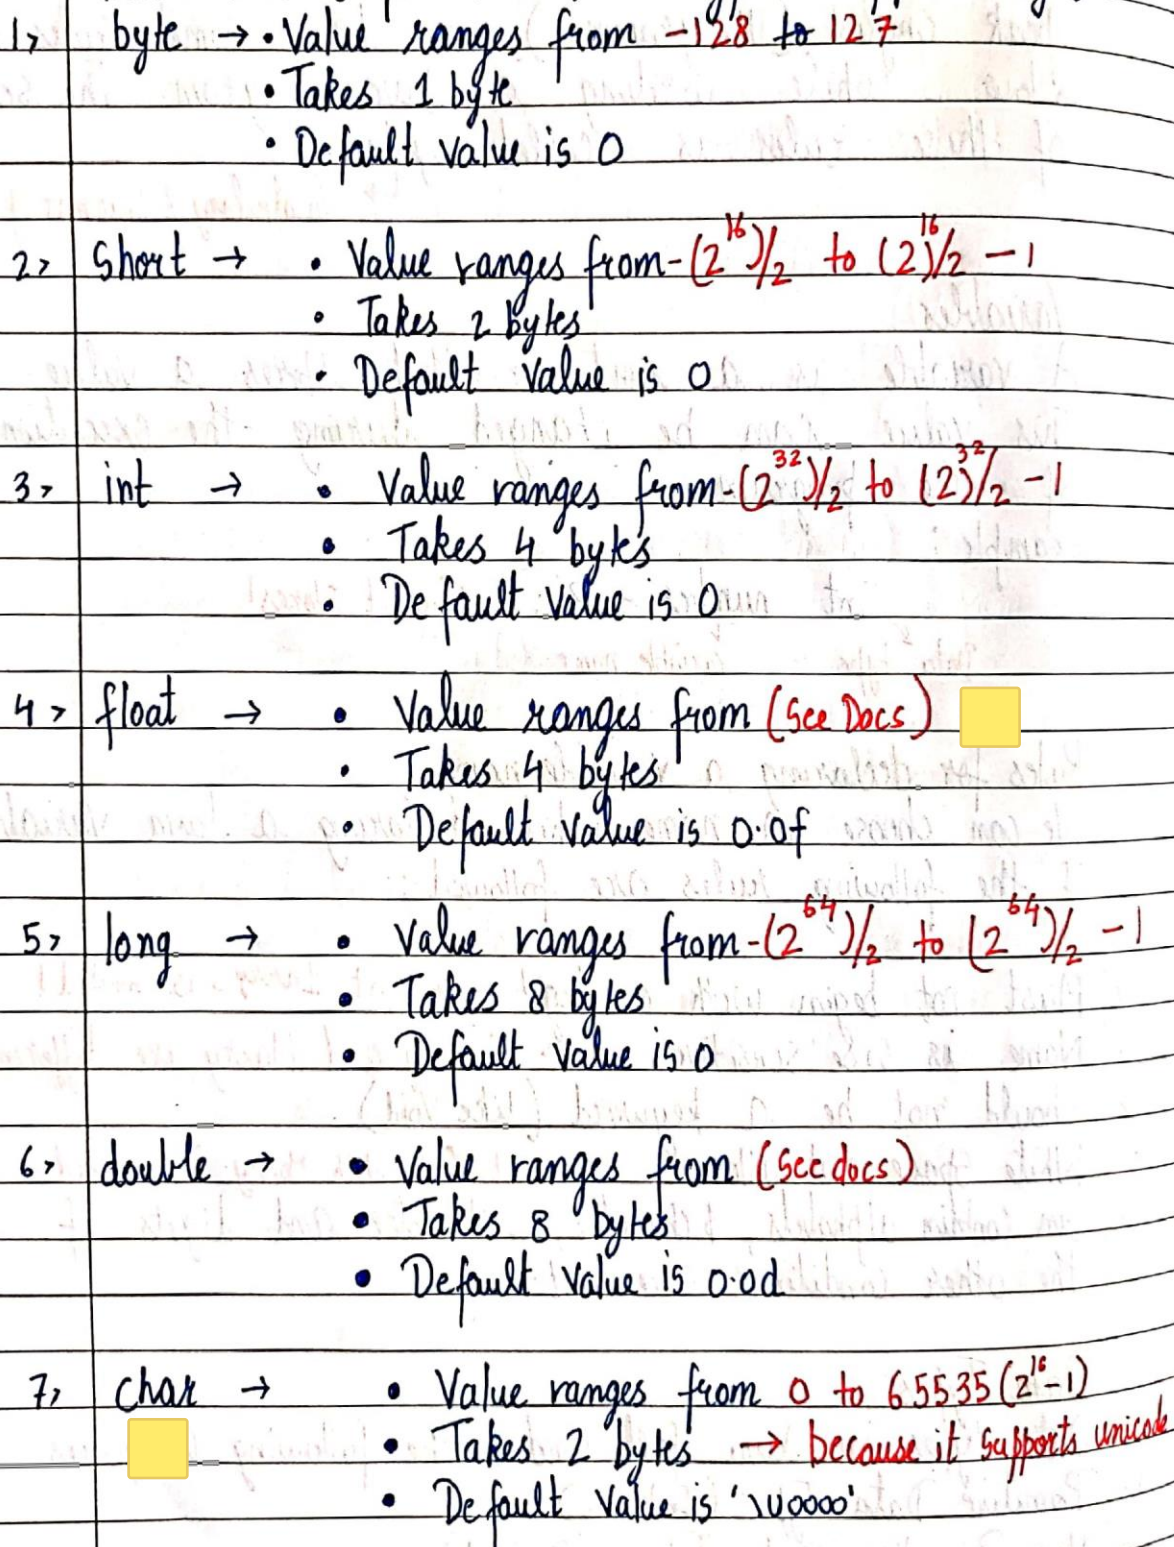 1> byte → • Value ranges from -128 to 127
• Takes 1 byte
• Default value is 0
2> Short → • Value ranges from -(2^16)/2 to (2^16)/2 - 1
• Takes 2 bytes
• Default value is 0
3> int → • Value ranges from -(2^32)/2 to (2^32)/2 - 1
• Takes 4 bytes
• Default value is 0
4> float → • Value ranges from (See Docs)
• Takes 4 bytes
• Default value is 0.0f
5> long → • Value ranges from -(2^64)/2 to (2^64)/2 - 1
• Takes 8 bytes
• Default value is 0
6> double → • Value ranges from (See docs)
• Takes 8 bytes
• Default value is 0.0d
7> char → • Value ranges from 0 to 65535 (2^16-1)
• Takes 2 bytes → because it supports unicode
• Default value is '\u0000'